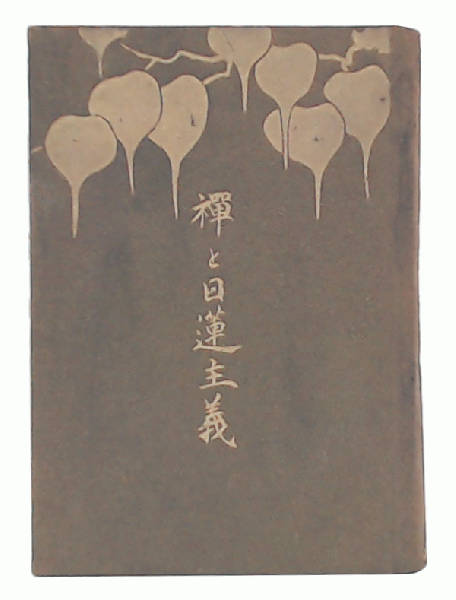 禪と日蓮主義